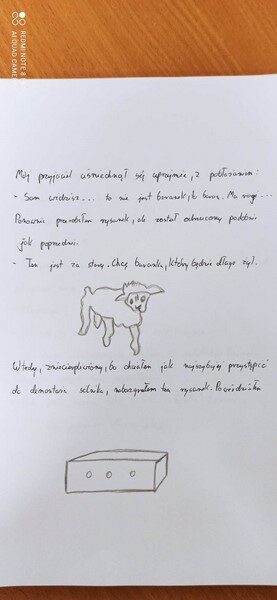 REDMI NOTE 8
AI QUAD CAMERA
Mój przyjaciel uśmiechnął się uprzejmie, z pobłażaniem:
- Sam widzisz... to nie jest baranek, to baran. Ma rogi...
Ponownie przerobiłem rysunek, ale został odrzucony podobnie
jak poprzedni.
- Ten jest za stary. Chcę baranka, który będzie długo żył.
Wtedy, zniecierpliwiony, bo chciałem jak najszybciej przystąpić
do demontażu silnika, nabazgrałem ten rysunek. Powiedziałem